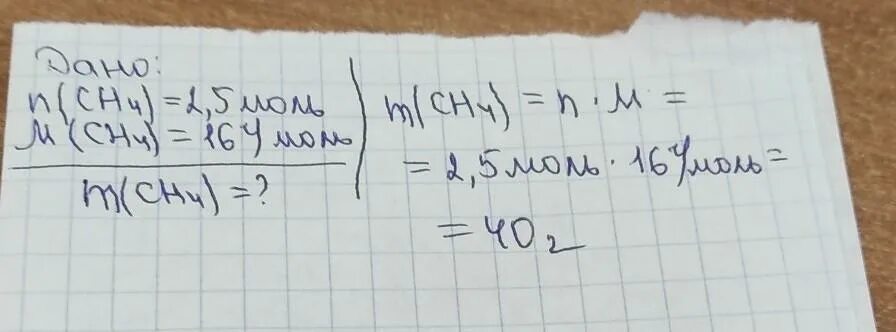 Дано:
n(CH4) = 2,5 моль
M(CH4) = 16 г/моль
m(CH4) = ?
m(CH4) = n · M =
= 2,5 моль · 16 г/моль =
= 40 г